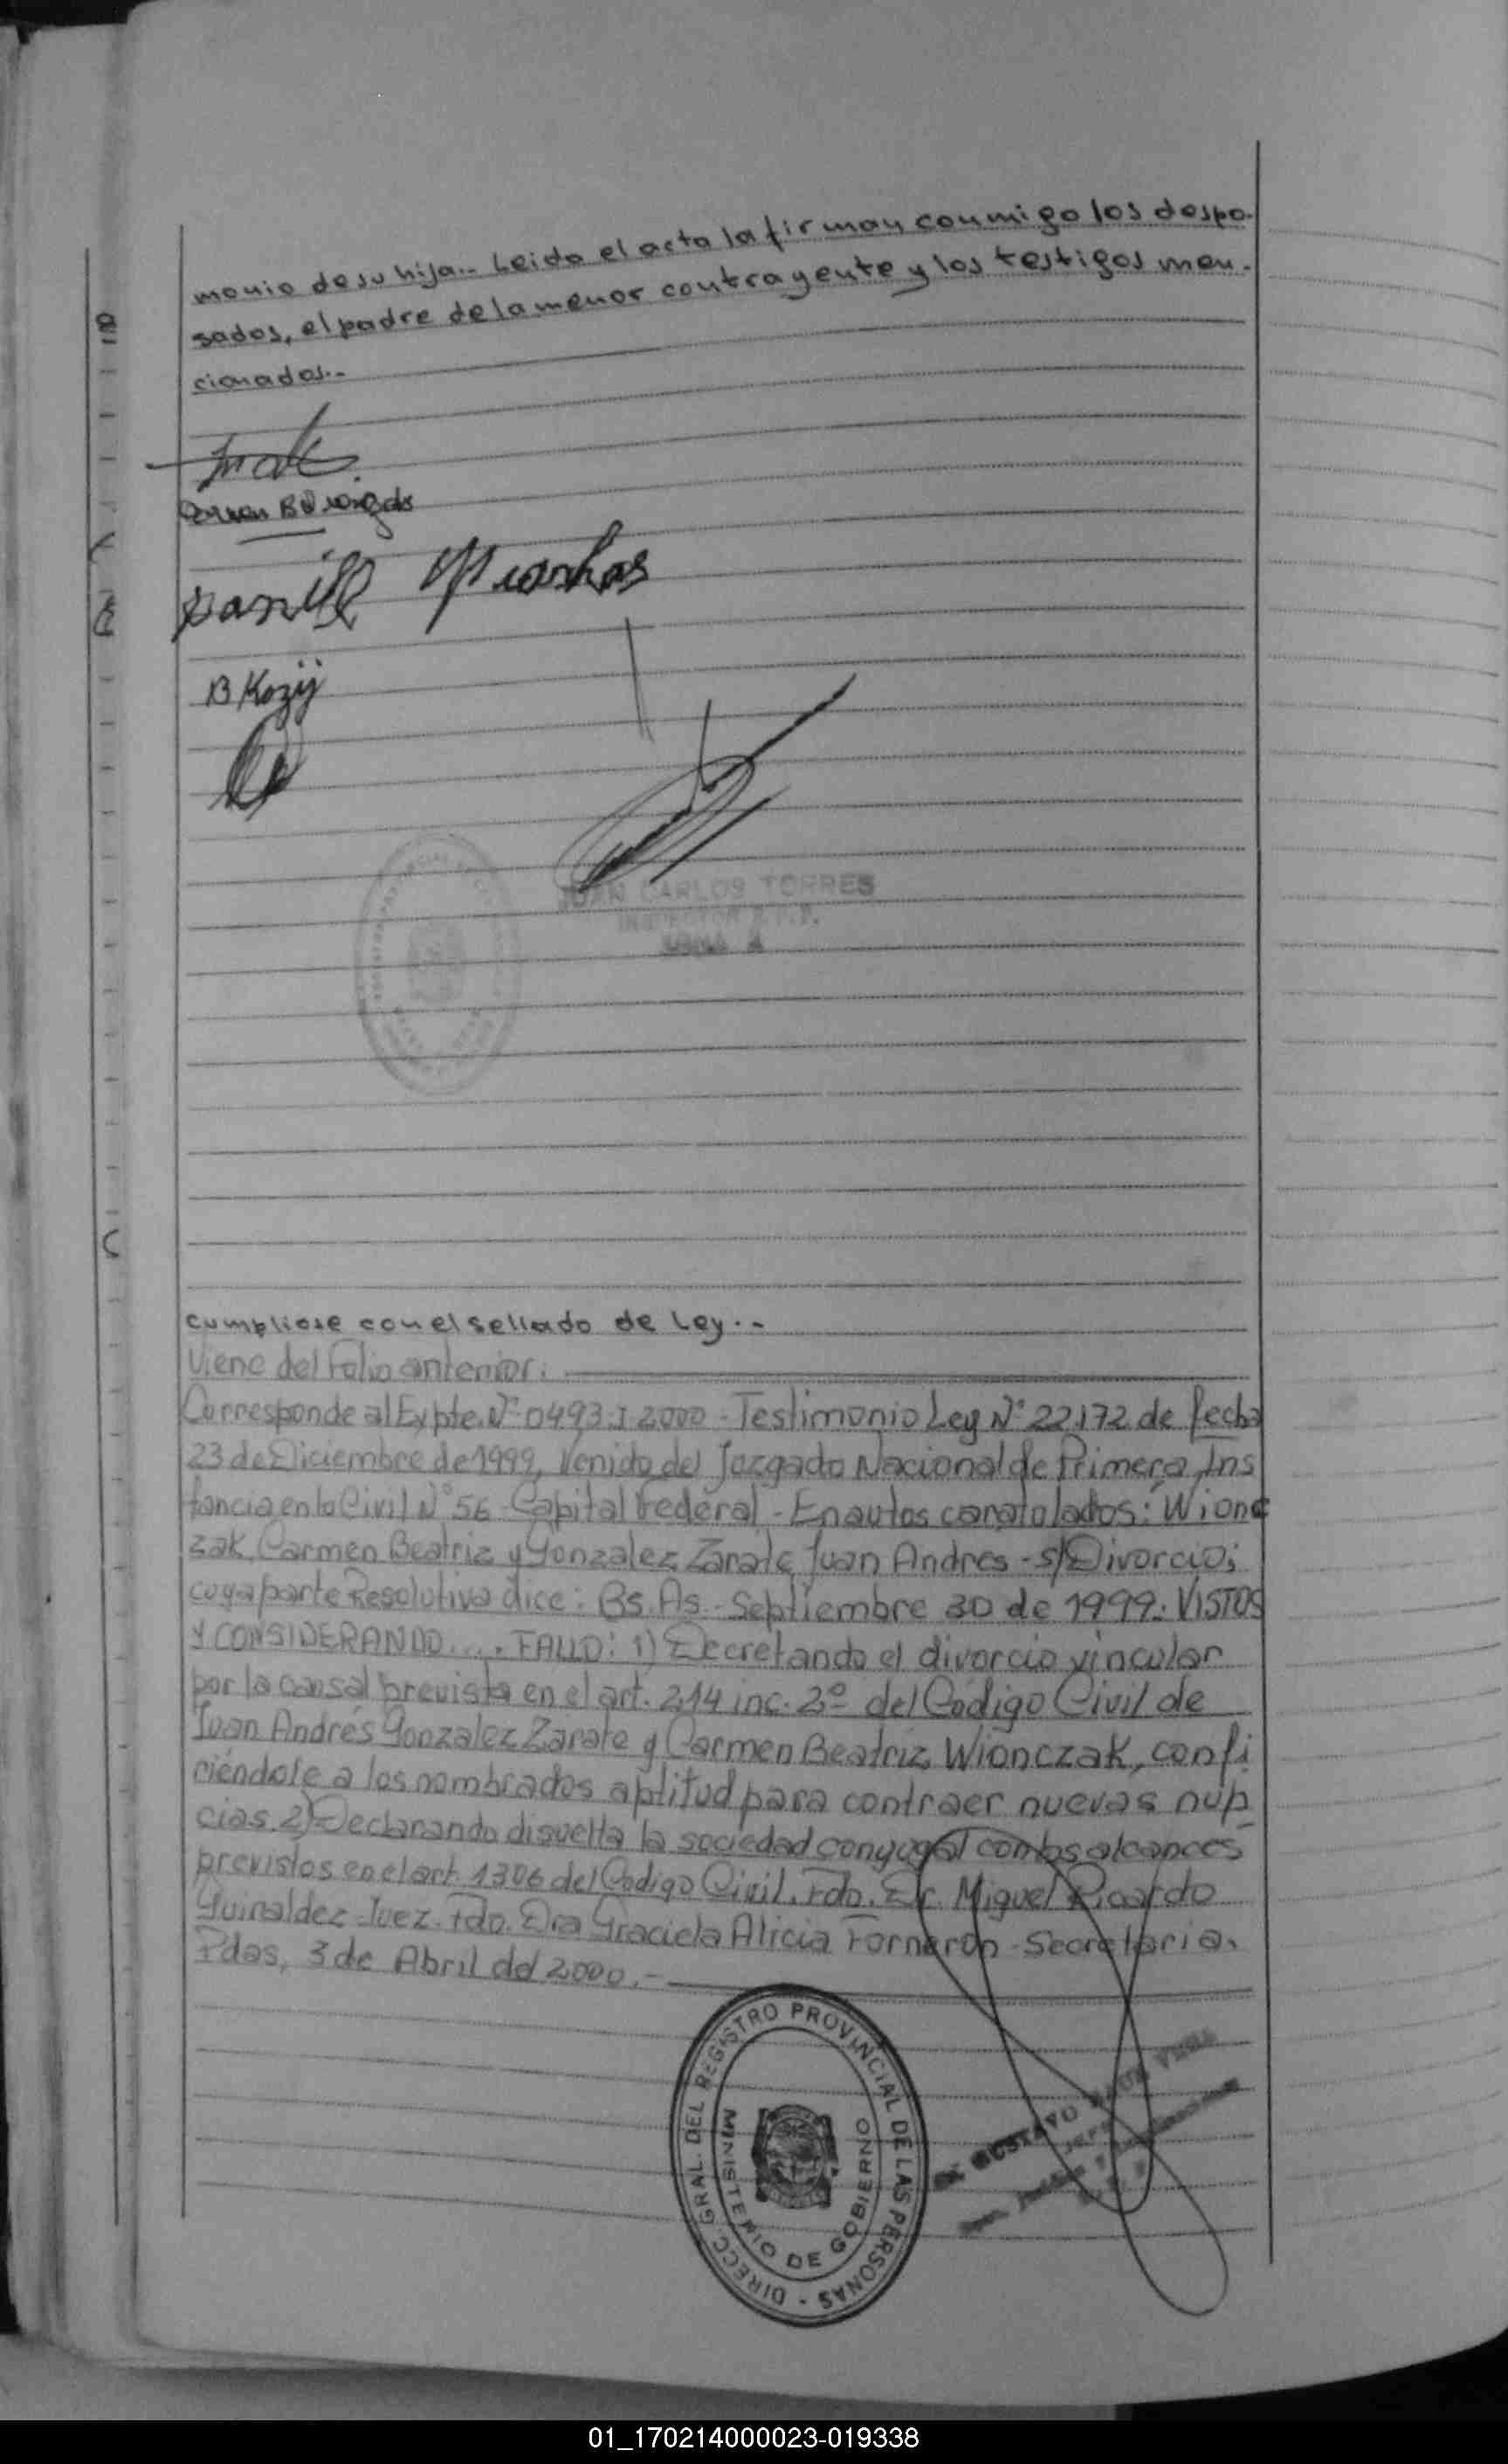 monio de su hija.- Leida el acta la firman conmigo los despo-
sados, el padre de la menor contrayente y los testigos men-
cionados.-
B Kozij
JUAN CARLOS TORRES
INSPECTOR R.P.P.
ZONA
Cumpliose con el sellado de Ley.-
Viene del Folio anterior:
Corresponde al Expte. Nº 0493-J-2000 - Testimonio Ley Nº 22.172 de fecha
23 de Diciembre de 1999, Venido del Juzgado Nacional de Primera Ins
tancia en lo Civil Nº 56 - Capital Federal - En autos caratulados: Wionc
zak, Carmen Beatriz y Gonzalez Zarate, Juan Andres - s/Divorcio;
cuya parte Resolutiva dice: Bs. As. - Septiembre 30 de 1999. VISTOS
Y CONSIDERANDO.... FALLO: 1) Decretando el divorcio vincular
por la causal prevista en el art. 214 inc. 2º del Código Civil de
Juan Andrés Gonzalez Zarate y Carmen Beatriz Wionczak, confi
riéndole a los nombrados aptitud para contraer nuevas nup
cias. 2) Declarando disuelta la sociedad conyugal con los alcances
previstos en el art. 1306 del Codigo Civil. Fdo. Dr. Miguel Ricardo
Guiraldez - Juez. Fdo. Dra Graciela Alicia Forneron - Secretaria.
Pdas, 3 de Abril del 2000.-
DIRECC. GRAL. DEL REGISTRO PROVINCIAL DE LAS PERSONAS -
MINISTERIO DE GOBIERNO
GUSTAVO
JEFE
01_170214000023-019338